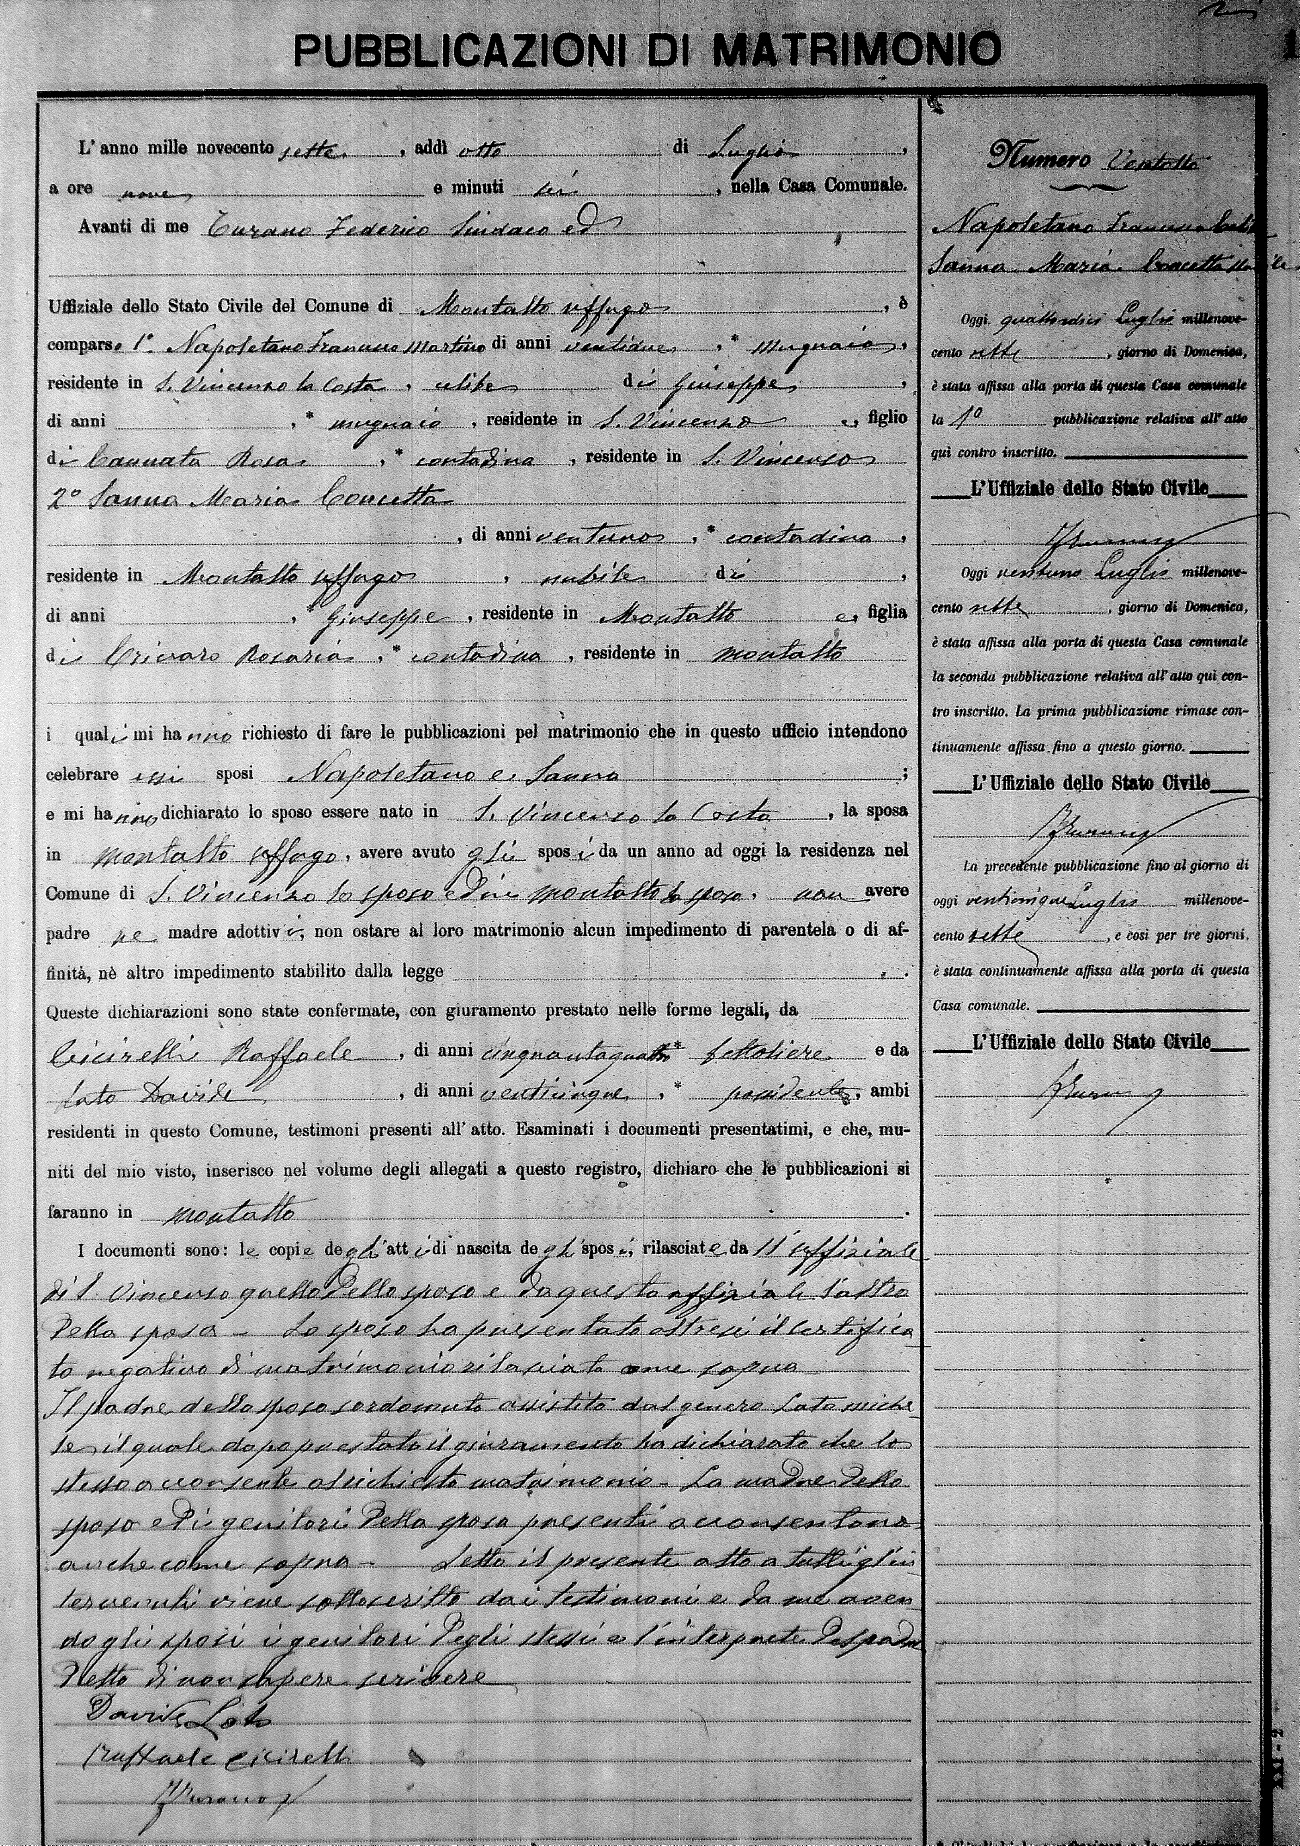 PUBBLICAZIONI DI MATRIMONIO
L'anno mille novecento sette, addì otto di Luglio,
a ore nove e minuti sei, nella Casa Comunale.
Avanti di me Turano Federico Sindaco ed
Uffiziale dello Stato Civile del Comune di Montalto Uffugo, è
comparso 1°. Napoletano Francesco Martino di anni ventidue, * mugnaio,
residente in S. Vincenzo la Costa, celibe di Giuseppe,
di anni , * mugnaio, residente in S. Vincenzo e, figlio
di Cannata Rosa, * contadina, residente in S. Vincenzo
2° Sanna Maria Concetta
, di anni ventuno, * contadina,
residente in Montalto Uffugo, nubile di ,
di anni , * Giuseppe, residente in Montalto e, figlia
di Crivaro Rosaria, * contadina, residente in Montalto
i quali mi hanno richiesto di fare le pubblicazioni pel matrimonio che in questo ufficio intendono
celebrare essi sposi Napoletano e Sanna ;
e mi hanno dichiarato lo sposo essere nato in S. Vincenzo la Costa, la sposa
in Montalto Uffugo, avere avuto gli sposi da un anno ad oggi la residenza nel
Comune di S. Vincenzo lo sposo ed in Montalto la sposa, non avere
padre ne madre adottivi, non ostare al loro matrimonio alcun impedimento di parentela o di af-
finità, nè altro impedimento stabilito dalla legge
Queste dichiarazioni sono state confermate, con giuramento prestato nelle forme legali, da
Cicirelli Raffaele, di anni cinquantaquattro * bettoliere e da
Lato Davide, di anni venticinque, * possidente, ambi
residenti in questo Comune, testimoni presenti all'atto. Esaminati i documenti presentatimi, e che, mu-
niti del mio visto, inserisco nel volume degli allegati a questo registro, dichiaro che le pubblicazioni si
faranno in Montalto.
I documenti sono: le copie degli atti di nascita degli sposi, rilasciate da ll'uffiziale
di S. Vincenzo quello dello sposo e da questo uffiziale l'altro
della sposa - Lo sposo ha presentato altresì il certifica
to negativo di matrimonio rilasciato come sopra
Il padre dello sposo sordomuto assistito dal genero Lato Miche
le il quale dopo prestato il giuramento ha dichiarato che lo
stesso acconsente al richiesto matrimonio - La madre dello
sposo ed i genitori della sposa presenti acconsentono
anche come sopra - Letto il presente atto a tutti gl'in
tervenuti viene sottoscritto dai testimoni e da me aven
do gli sposi i genitori degli stessi e l'interprete
detto di non sapere scrivere
Davide Lato
Raffaele Cicirelli
FTurano
Numero Ventotto
Napoletano Francesco Celibe
Sanna Maria Concetta nubile
Oggi quattordici Luglio millenove-
cento sette, giorno di Domenica,
è stata affissa alla porta di questa Casa comunale
la 1° pubblicazione relativa all'atto
qui contro inscritto.
L'Uffiziale dello Stato Civile
FTurano
Oggi ventuno Luglio millenove-
cento sette, giorno di Domenica,
è stata affissa alla porta di questa Casa comunale
la seconda pubblicazione relativa all'atto qui con-
tro inscritto. La prima pubblicazione rimase con-
tinuamente affissa fino a questo giorno.
L'Uffiziale dello Stato Civile
FTurano
La precedente pubblicazione fino al giorno di
oggi venticinque Luglio millenove-
cento sette, e così per tre giorni,
è stata continuamente affissa alla porta di questa
Casa comunale.
L'Uffiziale dello Stato Civile
FTurano